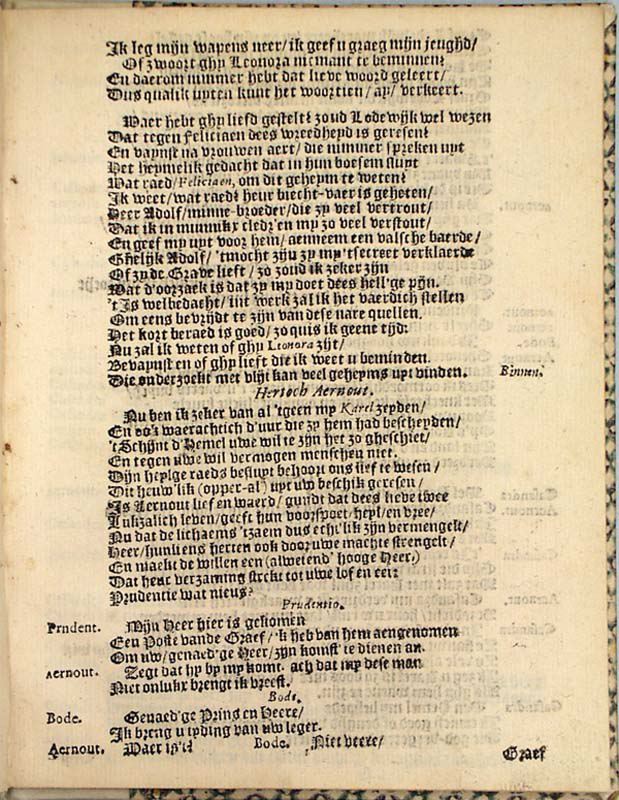 Ik leg mijn wapens neer/ ik geef u graeg mijn jeughd/
Of zwoort ghy Leonora niemant te beminnen?
En daerom nimmer hebt dat lieve woord geleert/
Dus qualik uyten kunt het woortien/ ay/ verkeert.
Waer hebt ghy liefd gestelt? zoud Lodewijk wel wezen
Dat tegen Feliciaen dees wreedheyd is geresen?
En vaynst na vrouwen aert/ die nimmer spreken uyt
Het heymelik gedacht dat in hun boesem sluyt
Wat raed/ Feliciaen, om dit geheym te weten?
Ik weet/ wat raed? heur biecht-vaer is geheten/
Heer Adolf/ minne-broeder/ die zy veel vertrout/
Dat ik in munnikx cledr'en my zo veel verstout/
En geef my uyt voor hem/ aenneem een valsche baerde/
Ghelijk Adolf/ 'tmocht zijn zy my 'tsecreet verklaerde
Of zy de Grave lieft/ zo zoud ik zeker zijn
Wat d'oorzaek is dat zy my doet dees hell'ge pijn.
't Is welbedacht/ int werk zal ik het vaerdich stellen
Om eens bevrijdt te zijn van dese nare quellen.
Het kort beraed is goed/ zo quis ik geene tijd:
Nu zal ik weten of ghy Leonora zijt/
Bevaynst en of ghy lieft die ik weet u beminden.
Die onderzoekt met vlijt kan veel geheyms uyt vinden. Binnen.
Hertoch Aernout.
Nu ben ik zeker van al 'tgeen my Karel zeyden/
En oo'k waerachtich d'uur die zy hem had bescheyden/
't Schijnt d'Hemel uwe wil te zijn het zo gheschiet/
En tegen uwe wil vermogen menschen niet.
Dijn heylge raeds besluyt behoort ons lief te wesen/
Dit heuw'lik (opper-al') uyt uw beschik geresen/
Is Aernout lief en waerd/ gundt dat dees lieve twee
Lukzalich leven/ geeft hun voorspoet/ heyl/ en vree/
Nu dat de lichaems 'tzaem dus echt'lik zijn vermengelt/
Heer/ hunliens herten ook door uwe machte strengelt/
En maekt de willen een (alwetend' hooge Heer,)
Dat heur verzaming strekt tot uwe lof en eer?
Prudentie wat nieus?
Prudentio.
Prudent. Mijn Heer hier is gekomen
Een Poste vande Graef/ 'k heb van hem aengenomen
Om uw/ genaed'ge Heer/ zijn komst' te dienen an.
Aernout. Zegt dat hy by my komt. ach dat my dese man
Niet onlukx brengt ik vreest.
Bode.
Bode. Genaed'ge Prins en Heere/
Ik breng u tyding van uw leger.
Aernout. Waer is't? Bode. Niet veere/
Graef